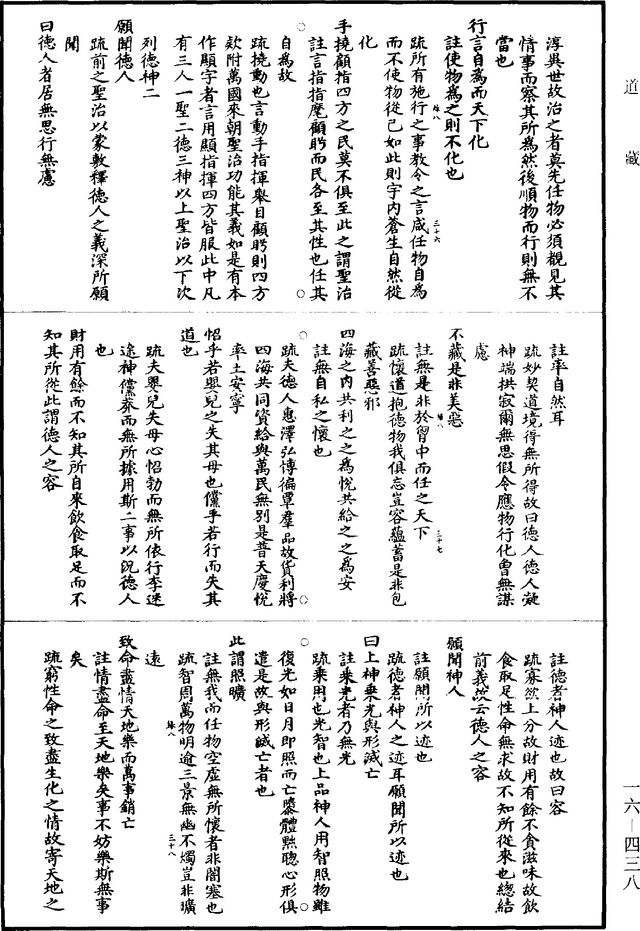 道藏
淳異世故治之者莫先任物必須覩見其
情事而察其所為然後順物而行則無不
當也
行言自為而天下化
註使物為之則不化也
疏所有施行之事教令之言咸任物自為
而不使物從己如此則宇內蒼生自然從
化
手撓顧指四方之民莫不俱至此之謂聖治
註言指指麾顧眄而民各至其性也任其
自為故
疏撓動也言動手指揮舉目顧眄則四方
欸附萬國來朝聖治功能其義如是有本
作顯字者言用顯指揮四方皆服此中凡
有三人一聖二德三神以上聖治以下次
列德神二
願聞德人
疏前之聖治以蒙敷釋德人之義深所願
聞
曰德人者居無思行無慮
註率自然耳
疏妙契道境得無所得故曰德人德人凝
神端拱寂爾無思假令應物行化曾無謀
慮
不藏是非美惡
註無是非於胷中而任之天下
疏懷道抱德物我俱忘豈容蘊蓄是非包
藏善惡邪
四海之內共利之之為悅共給之之為安
註無自私之懷也
疏夫德人惠澤弘博徧覃羣品故貨利將
四海共同資給與萬民無別是普天慶悅
率土安寧
怊乎若嬰兒之失其母也儻乎若行而失其
道也
疏夫嬰兒失母心怊勃而無所依行李迷
途神儻莽而無所據用斯二事以況德人
也
財用有餘而不知其所自來飲食取足而不
知其所從此謂德人之容
註德者神人迹也故曰容
疏寡欲上分故財用有餘不貪滋味故飲
食取足性命無求故不知所從來也總結
前義故云德人之容
願聞神人
註願聞所以迹也
疏德者神人之迹耳願聞所以迹也
曰上神乗光與形滅亡
註乗光者乃無光
疏乗用也光智也上品神人用智照物雖
復光如日月即照而亡隳體黜聰心形俱
遣是故與形滅亡者也
此謂照曠
註無我而任物空虛無所懷者非闇塞也
疏智周萬物明逾三景無幽不燭豈非曠
遠
致命盡情天地樂而萬事銷亡
註情盡命至天地樂矣事不妨樂斯無事
矣
疏窮性命之致盡生化之情故寄天地之
一六—四三八